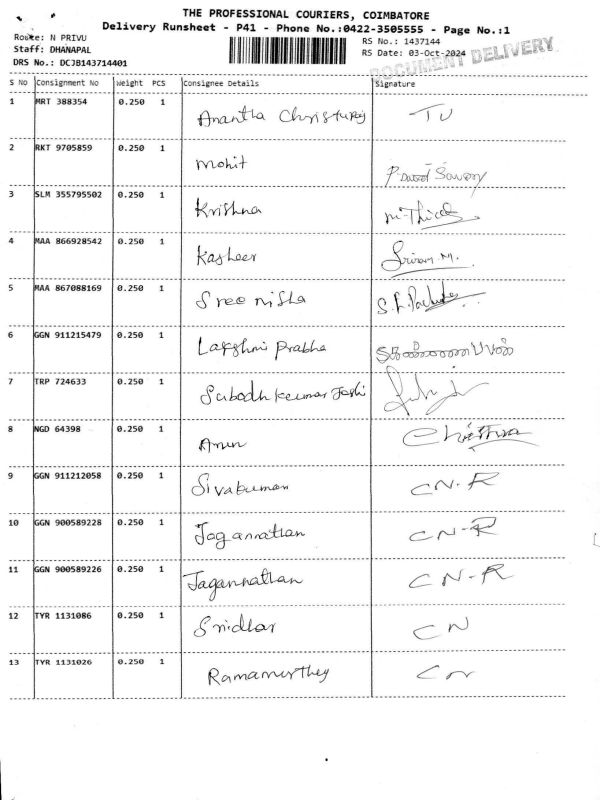 THE PROFESSIONAL COURIERS, COIMBATORE
Delivery Runsheet - P41 - Phone No.:0422-3505555 - Page No.:1
Route: N PRIVU
RS No.: 1437144
Staff: DHANAPAL
RS Date: 03-Oct-2024
DRS No.: DCJB143714401
DOCUMENT DELIVERY
S NO Consignment No Weight PCS Consignee Details Signature
1 MRT 388354 0.250 1 Anantha TU
2 RKT 9705859 0.250 1 Mohit
3 SLM 355795502 0.250 1 Krishna
4 MAA 866928542 0.250 1 Kasheer
5 MAA 867088169 0.250 1 Sree nisha
6 GGN 911215479 0.250 1 Lakshmi Prabha
7 TRP 724633 0.250 1 Subodh kumar Joshi
8 NGD 64398 0.250 1 Arun
9 GGN 911212058 0.250 1 Sivakumar CN-R
10 GGN 900589228 0.250 1 Jagannathan CN-R
11 GGN 900589226 0.250 1 Jagannathan CN-R
12 TYR 1131086 0.250 1 Sridhar CN
13 TYR 1131026 0.250 1 Ramamurthey CN